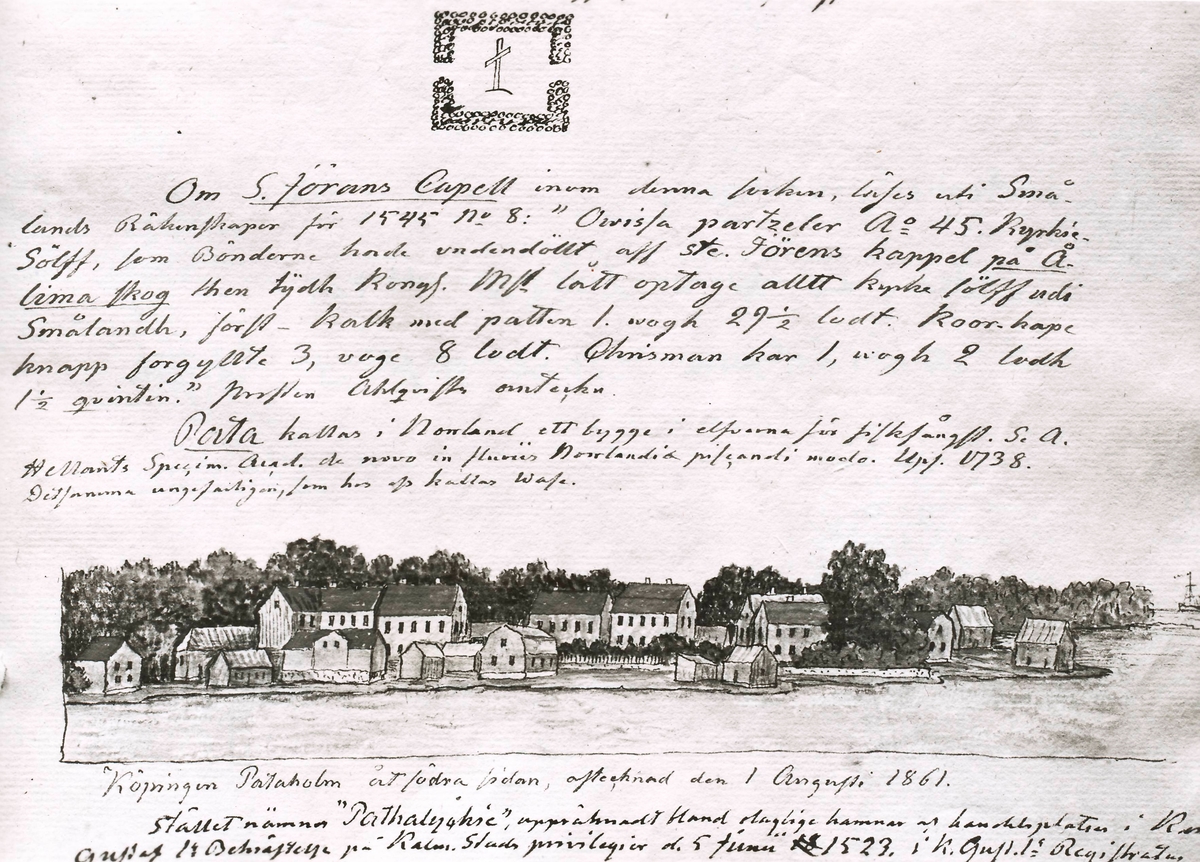 Om S. Jörans Capell inom denna socken, läses uti Små-
lands Räkenskaper för 1545 No 8: "Owissa partzeler Ao 45. Kyrkie-
Sölff, som Bönderne hade vndendöllt aff ste. Jörens kappel på Å-
lima skog then tijdh Kongl. Mst. lätt optage alltt kyrke sölff udi
Smålandh, först - Kalk med patten 1. wogh 29½ lodt. Koorkape
knapp forgyllte 3, voge 8 lodt. Chrisman kar 1, wogh 2 lodh
1½ qvintin." Prosten Ahlqvists anteckn.
Pata kallas i Norrland ett bygge i elfverna för fiskfångst. Se A.
Hellants Specim. Acad. de novo in fluviis Norrlandiæ piscandi modo. Ups. 1738.
Detsamma ungefärligen, som hos oss kallas Wase.
Köpingen Pataholm åt södra sidan, aftecknad den 1 Augusti 1861.
Stället nämnes "Pathalyckie", uppräknadt bland olaglige hamnar och handelsplatser i
Gustaf Is Bekräftelse på Kalm. Stads privilegier d. 5 Junii 1523. i K. Gust. Is Registratur